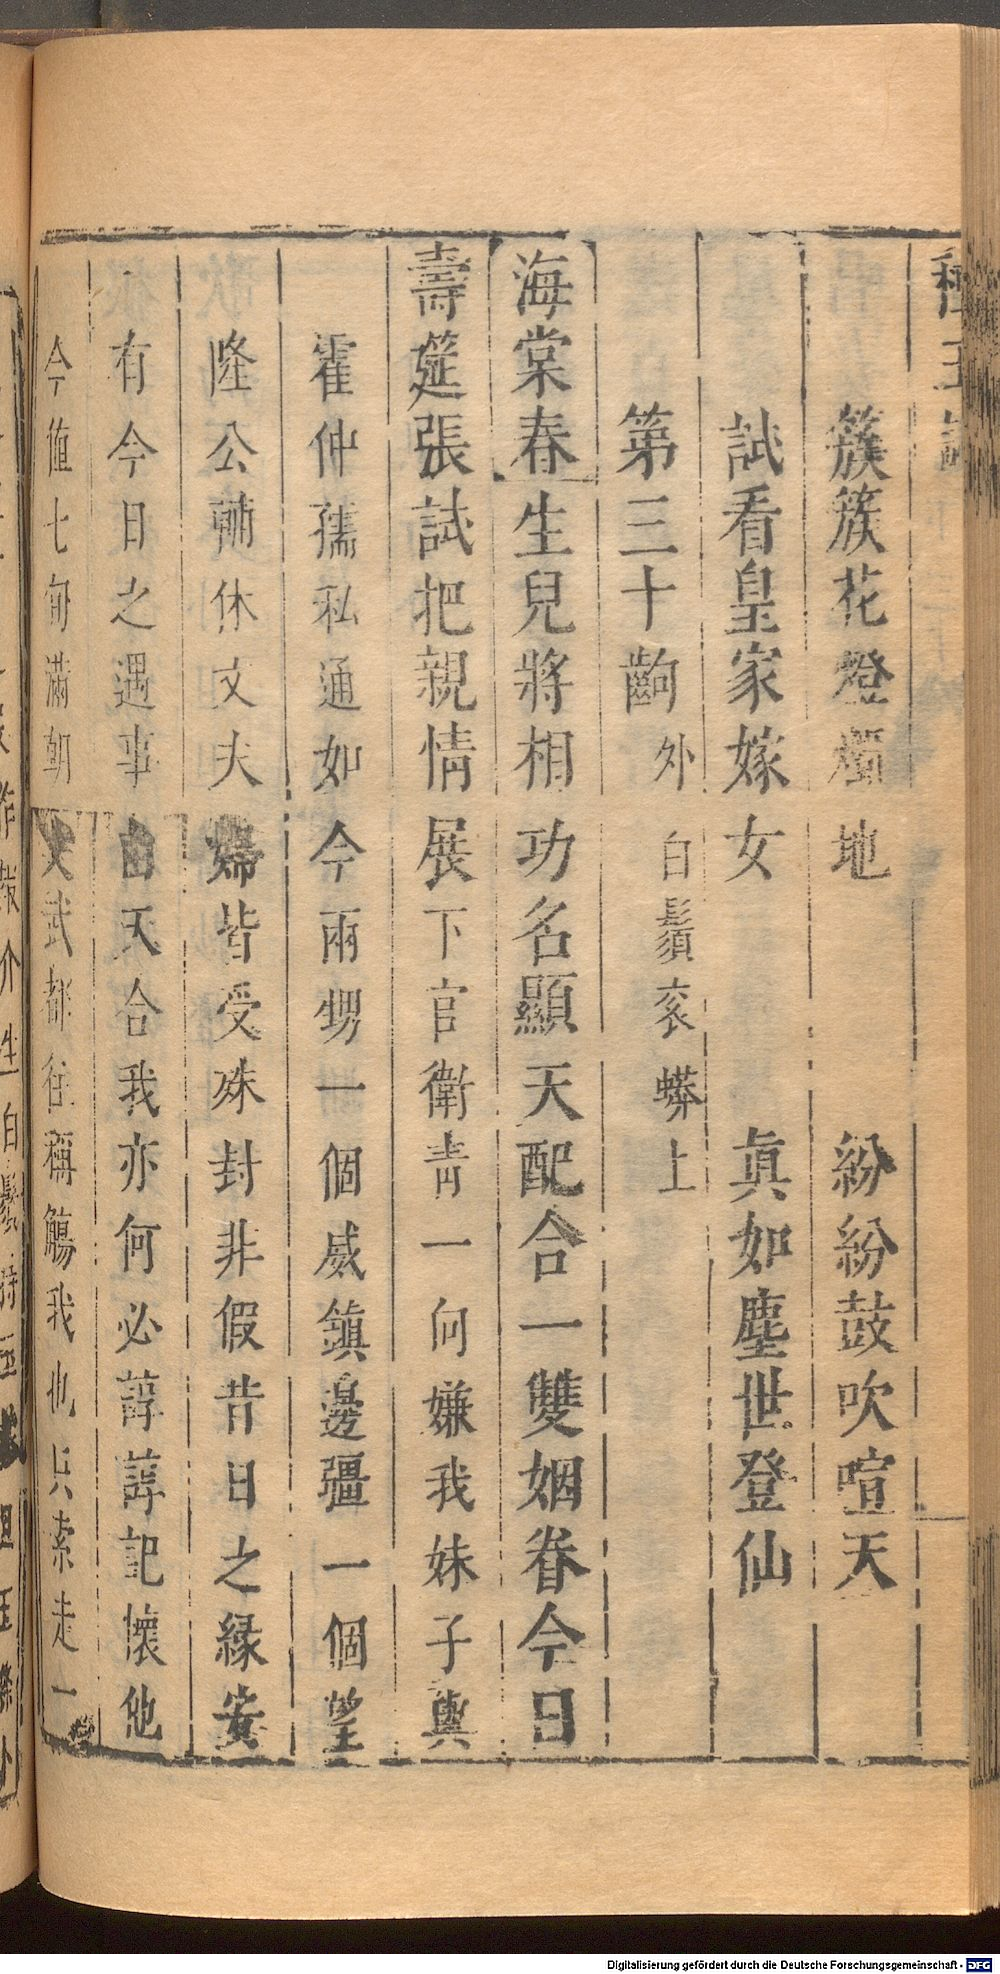 種玉記
簇簇花燈燭地 紛紛鼓吹喧天
試看皇家嫁女 真如塵世登仙
第三十齣 外白鬚衮蟒上
海棠春生兒將相功名顯天配合一雙姻眷今日
壽筵張試把親情展下官衛青一向嫌我妹子與
霍仲孺私通如今兩甥一個威鎮邊疆一個望
隆公輔休文夫婦皆受殊封非假昔日之緣安
有今日之遇事由天合我亦何必諄諄記懷他
今値七旬滿朝文武都往稱觴我也只索走一
Digitalisierung gefördert durch die Deutsche Forschungsgemeinschaft - DFG